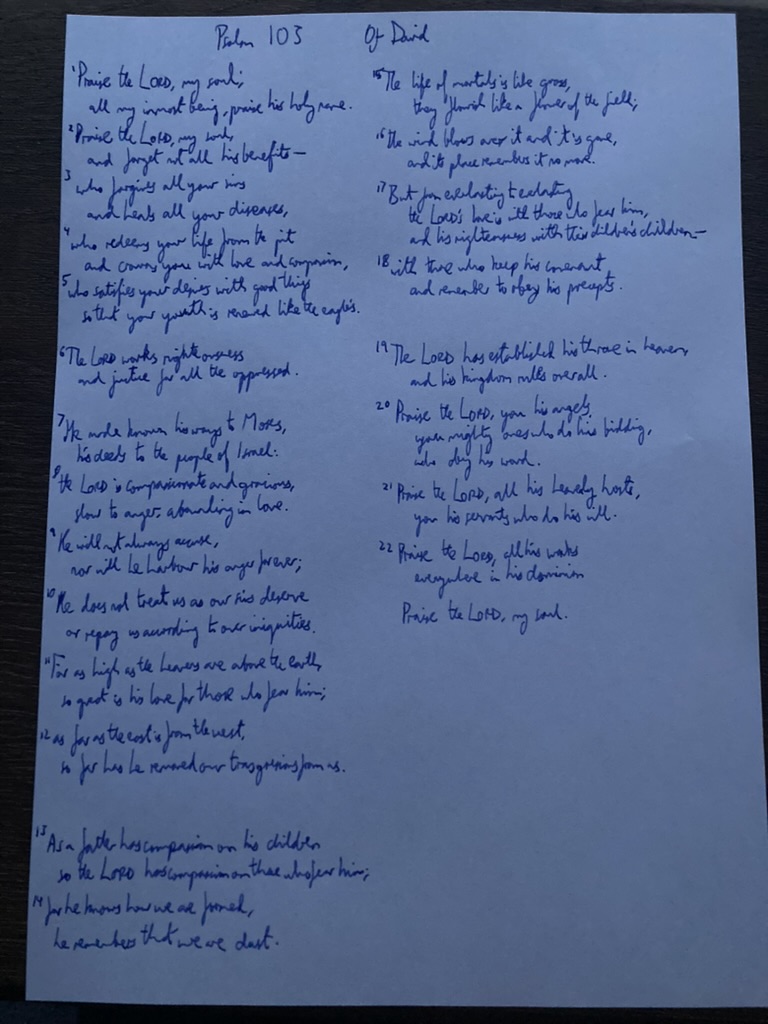 Psalm 103 Of David
1 Praise the LORD, my soul;
all my inmost being, praise his holy name.
2 Praise the LORD, my soul,
and forget not all his benefits—
3 who forgives all your sins
and heals all your diseases,
4 who redeems your life from the pit
and crowns you with love and compassion,
5 who satisfies your desires with good things
so that your youth is renewed like the eagle's.
6 The LORD works righteousness
and justice for all the oppressed.
7 He made known his ways to Moses,
his deeds to the people of Israel:
8 the LORD is compassionate and gracious,
slow to anger, abounding in love.
9 He will not always accuse,
nor will he harbour his anger forever;
10 He does not treat us as our sins deserve
or repay us according to our iniquities.
11 For as high as the heavens are above the earth,
so great is his love for those who fear him;
12 as far as the east is from the west,
so far has he removed our transgressions from us.
13 As a father has compassion on his children
so the LORD has compassion on those who fear him;
14 for he knows how we are formed,
he remembers that we are dust.
15 The life of mortals is like grass,
they flourish like a flower of the field;
16 the wind blows over it and it is gone,
and its place remembers it no more.
17 But from everlasting to everlasting
the LORD's love is with those who fear him,
and his righteousness with their children's children—
18 with those who keep his covenant
and remember to obey his precepts.
19 The LORD has established his throne in heaven,
and his kingdom rules over all.
20 Praise the LORD, you his angels,
you mighty ones who do his bidding,
who obey his word.
21 Praise the LORD, all his heavenly hosts,
you his servants who do his will.
22 Praise the LORD, all his works
everywhere in his dominion
Praise the LORD, my soul.